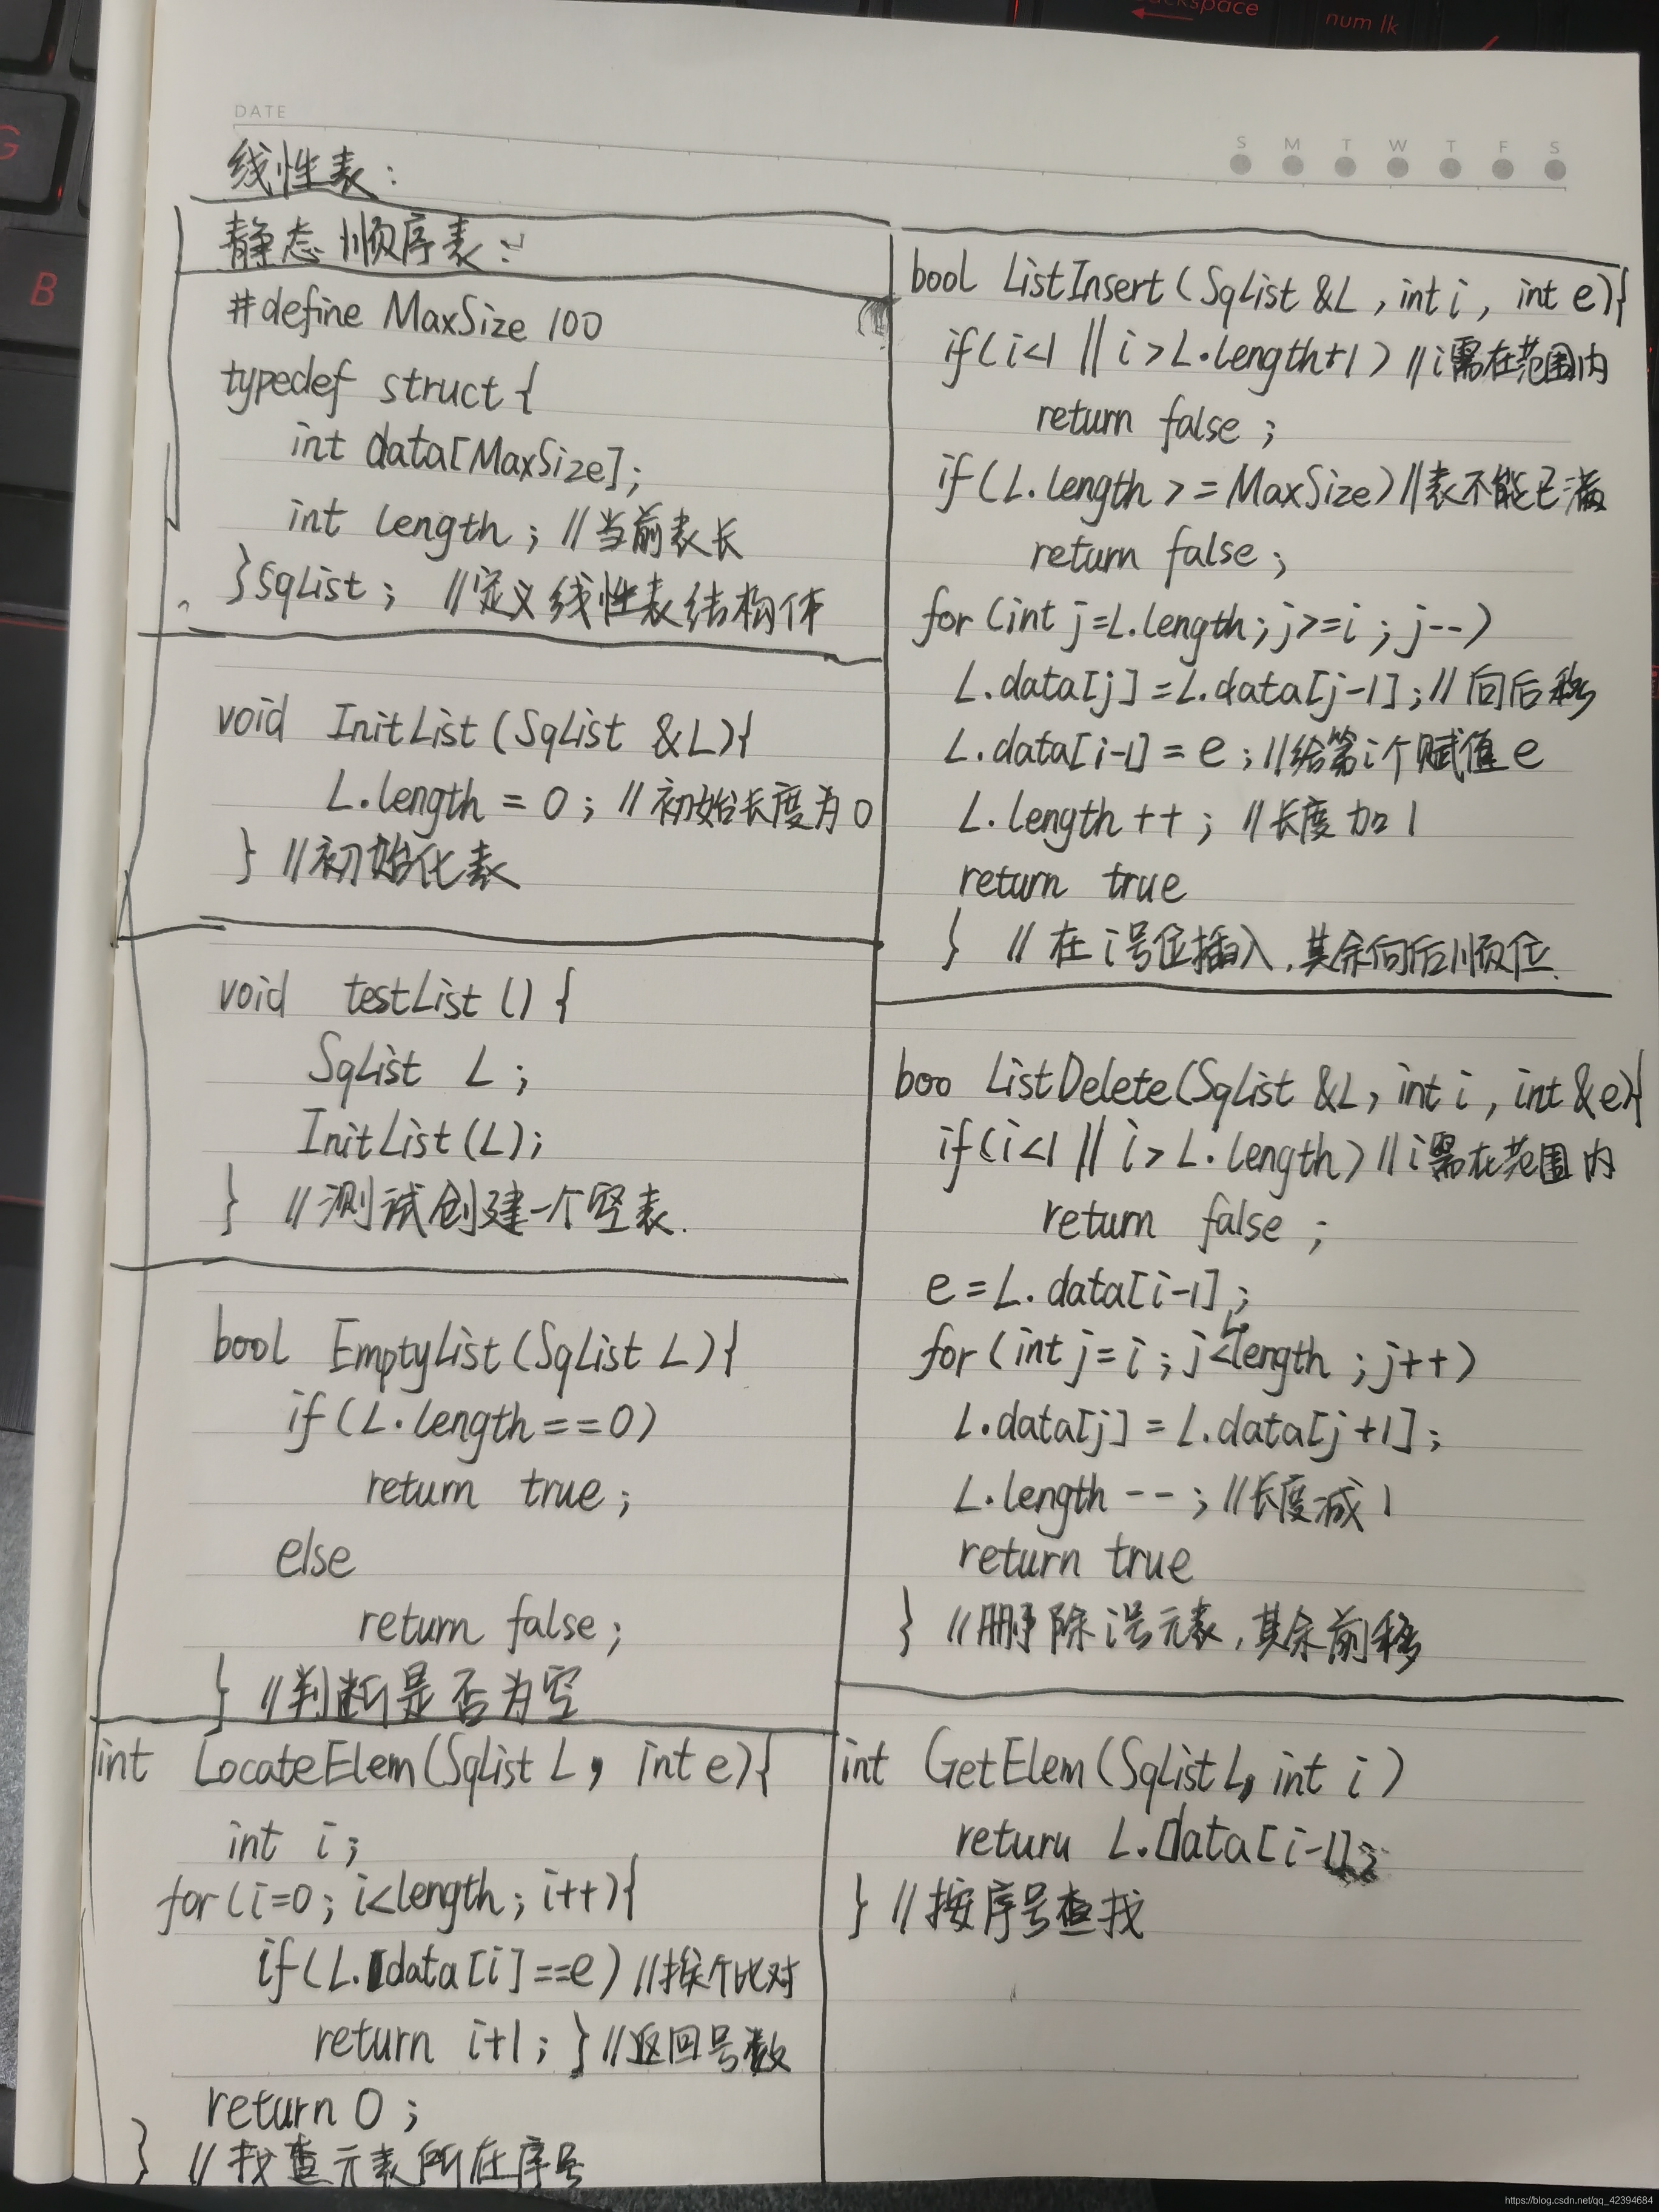 backspace
num lk
G
B
DATE
S M T W T F S
线性表：
静态顺序表：
#define MaxSize 100
typedef struct {
int data[MaxSize];
int length; //当前表长
}SqList; //定义线性表结构体
void InitList (SqList &L){
L.length = 0; //初始长度为0
} //初始化表
void testList () {
SqList L;
InitList(L);
} //测试创建一个空表.
bool EmptyList (SqList L){
if (L.length==0)
return true;
else
return false;
} //判断是否为空
int LocateElem(SqList L, int e){
int i;
for (i=0; i<length; i++){
if (L.data[i]==e) //挨个比对
return i+1; } //返回号数
return 0;
} //找查元表所在序号
bool ListInsert (SqList &L, int i, int e){
if(i<1 || i>L.length+1) //i需在范围内
return false;
if (L.length >= MaxSize) //表不能已满
return false;
for (int j=L.length; j>=i; j--)
L.data[j]=L.data[j-1]; //向后移
L.data[i-1] = e; //给第i个赋值e
L.length++; //长度加1
return true
} //在i号位插入,其余向后顺位.
boo ListDelete(SqList &L, int i, int &e){
if(i<1 || i>L.length) //i需在范围内
return false;
e=L.data[i-1];
for (int j=i; j<L.length; j++)
L.data[j] = L.data[j+1];
L.length--; //长度减1
return true
} //删除i号元表,其余前移
int GetElem (SqList L, int i)
return L.data[i-1];
} //按序号查找
https://blog.csdn.net/qq_42394684